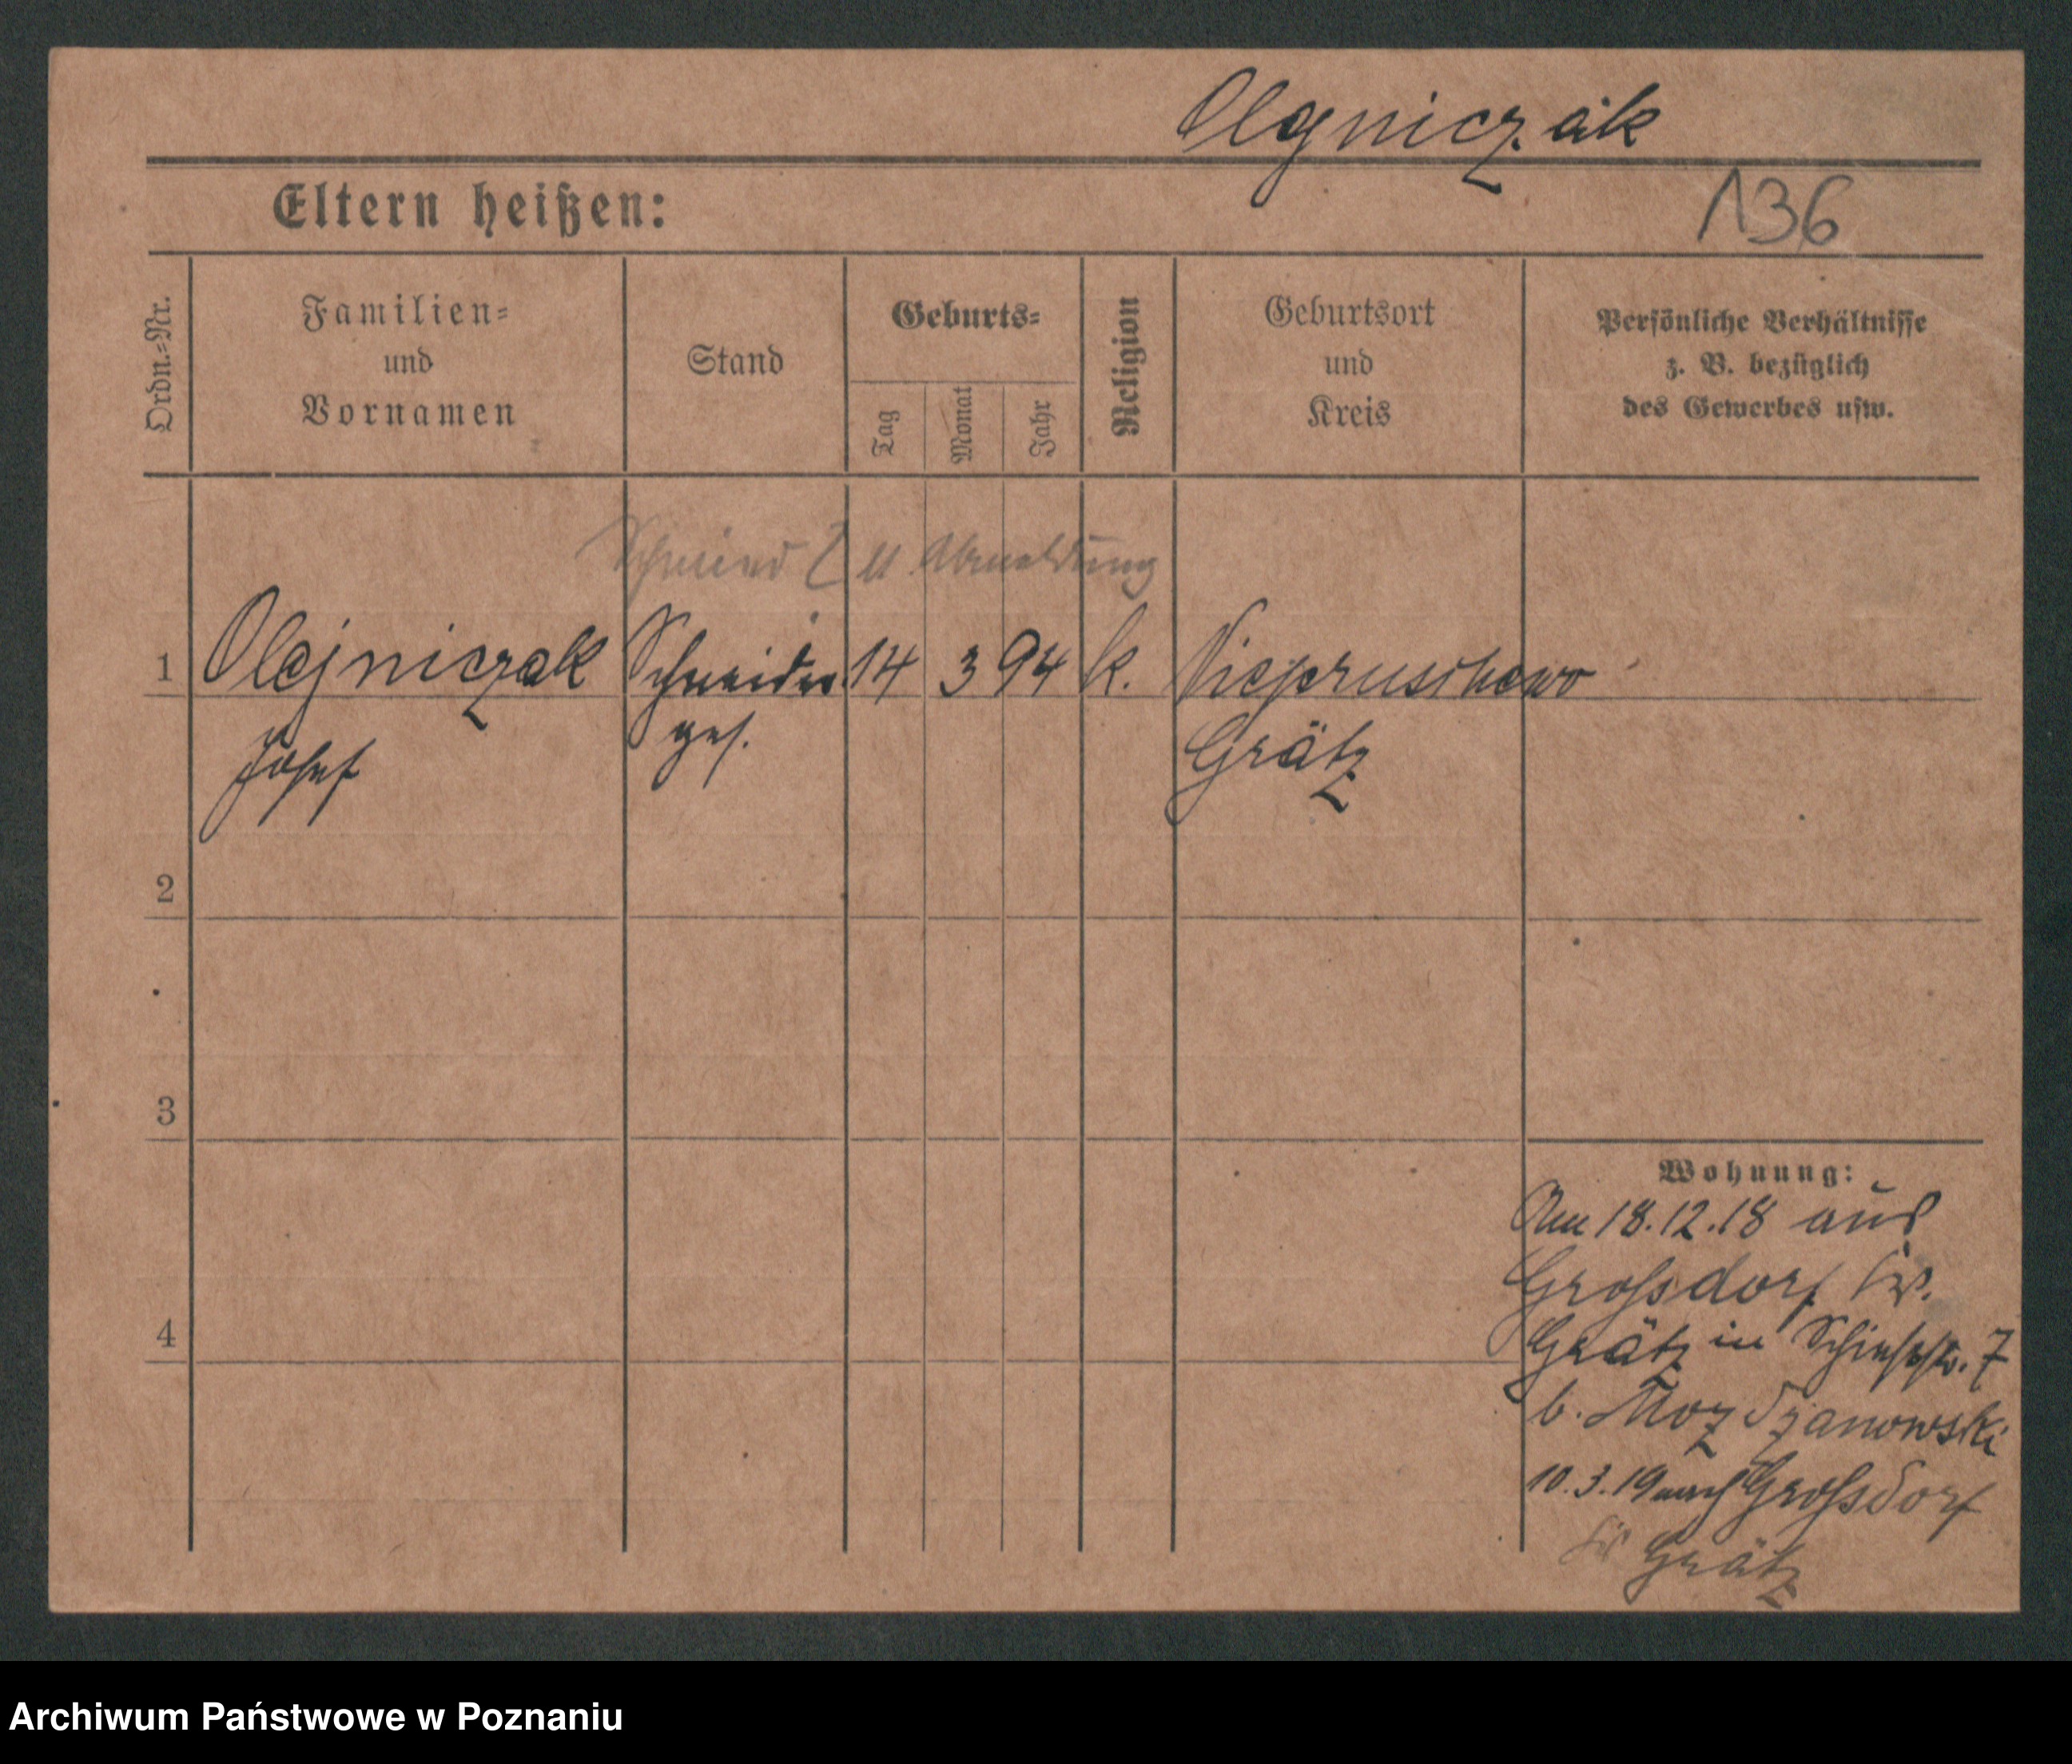 Olejniczak
136
Eltern heißen:
Ordn.-Nr.
Familien-
und
Vornamen
Stand
Geburts-
Tag
Monat
Jahr
Religion
Geburtsort
und
Kreis
Persönliche Verhältnisse
z. B. bezüglich
des Gewerbes usw.
Schmied lt Abmeldung
1 Olejniczak Schneider 14 3 94 k. Niepruschewo
Josef ges. Grätz
2
3
4
Wohnung:
Am 18.12.18 aus
Grossdorf Krs.
Grätz in 7
b.
10.3.19 nach Grossdorf
Grätz
Archiwum Państwowe w Poznaniu